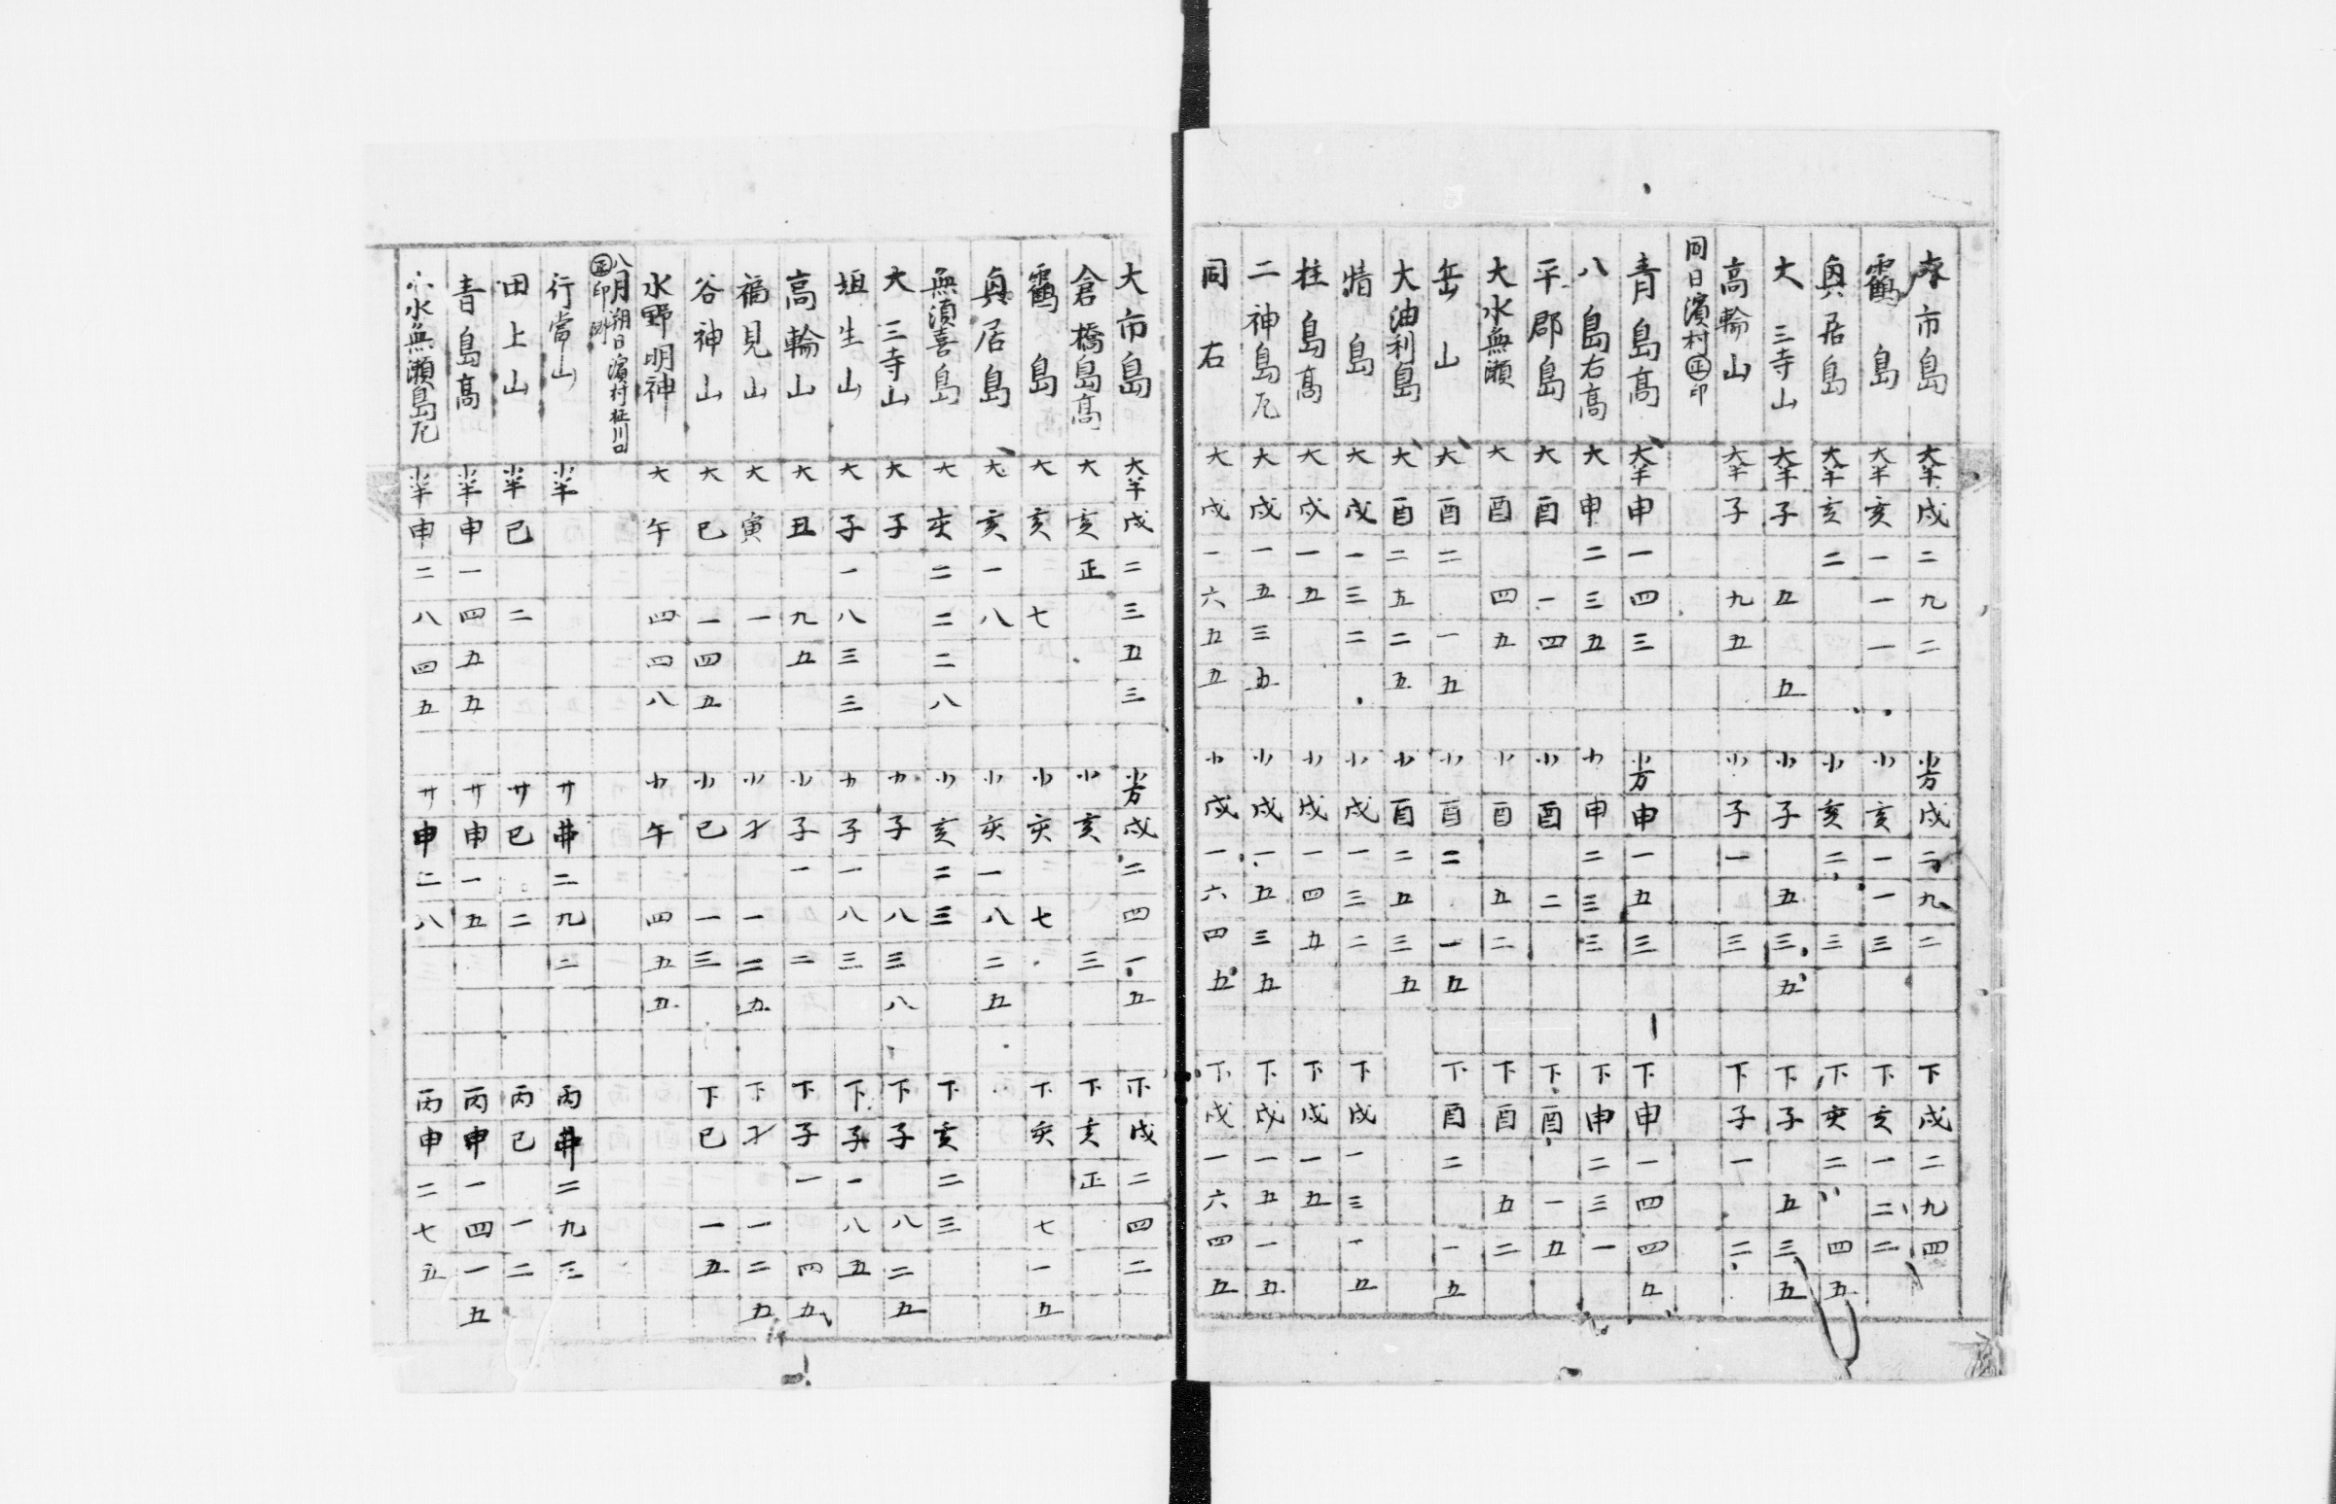 市島 大半戌二九二 小方戌二九二 下戌二九四
霍島 大半亥一一一 小亥一一三 下亥一二二
奥居島 大半亥二 小亥二三 下亥二四五
大三寺山 大半子五五 小子五三五 下子五三五
高輪山 大半子九五 小子一三 下子一二
同日濱村㊣印
青島高 大半申一四三 小方申一五三 下申一四四五
八島右高 大申二三五 小申二三三 下申二三一
平郡島 大酉一四 小酉二 下酉一五
大水無瀬 大酉四五 小酉五二 下酉五二
岳山 大酉二一五 小酉二一五 下酉二一五
大油利島 大酉二五二五 小酉二五三五
情島 大戌一三二 小戌一三二 下戌一三一五
柱島高 大戌一五 小戌一四五 下戌一五
二神島凢 大戌一五三五 小戌一五三五 下戌一五一五
同右 大戌一六五五 小戌一六四五 下戌一六四五
大市島 大半戌二三五三 小方戌二四一五 下戌二四二
倉橋島高 大亥正 小亥三 下亥正
霍島 大亥七 小亥七 下亥七一五
奥居島 大亥一八 小亥一八二五
無須喜島 大亥二二二八 小亥二三 下亥二三
大三寺山 大子 小子八三八 下子八二五
垣生山 大子一八三三 小子一八三 下子一八五
高輪山 大丑九五 小子一二 下子一四五
福見山 大寅一 小才一二五 下才一二五
谷神山 大巳一四五 小巳一三 下巳一五
水野明神 大午四四八 小午四五五
八月朔日濱村
㊣印
行當山 小半 廾丑二九二 丙丑二九三
田上山 小半巳二 廾巳二 丙巳一二
青島高 小半申一四五五 廾申一五 丙申一四一五
小水無瀬島凢 小半申二八四五 廾申二八 丙申二七五